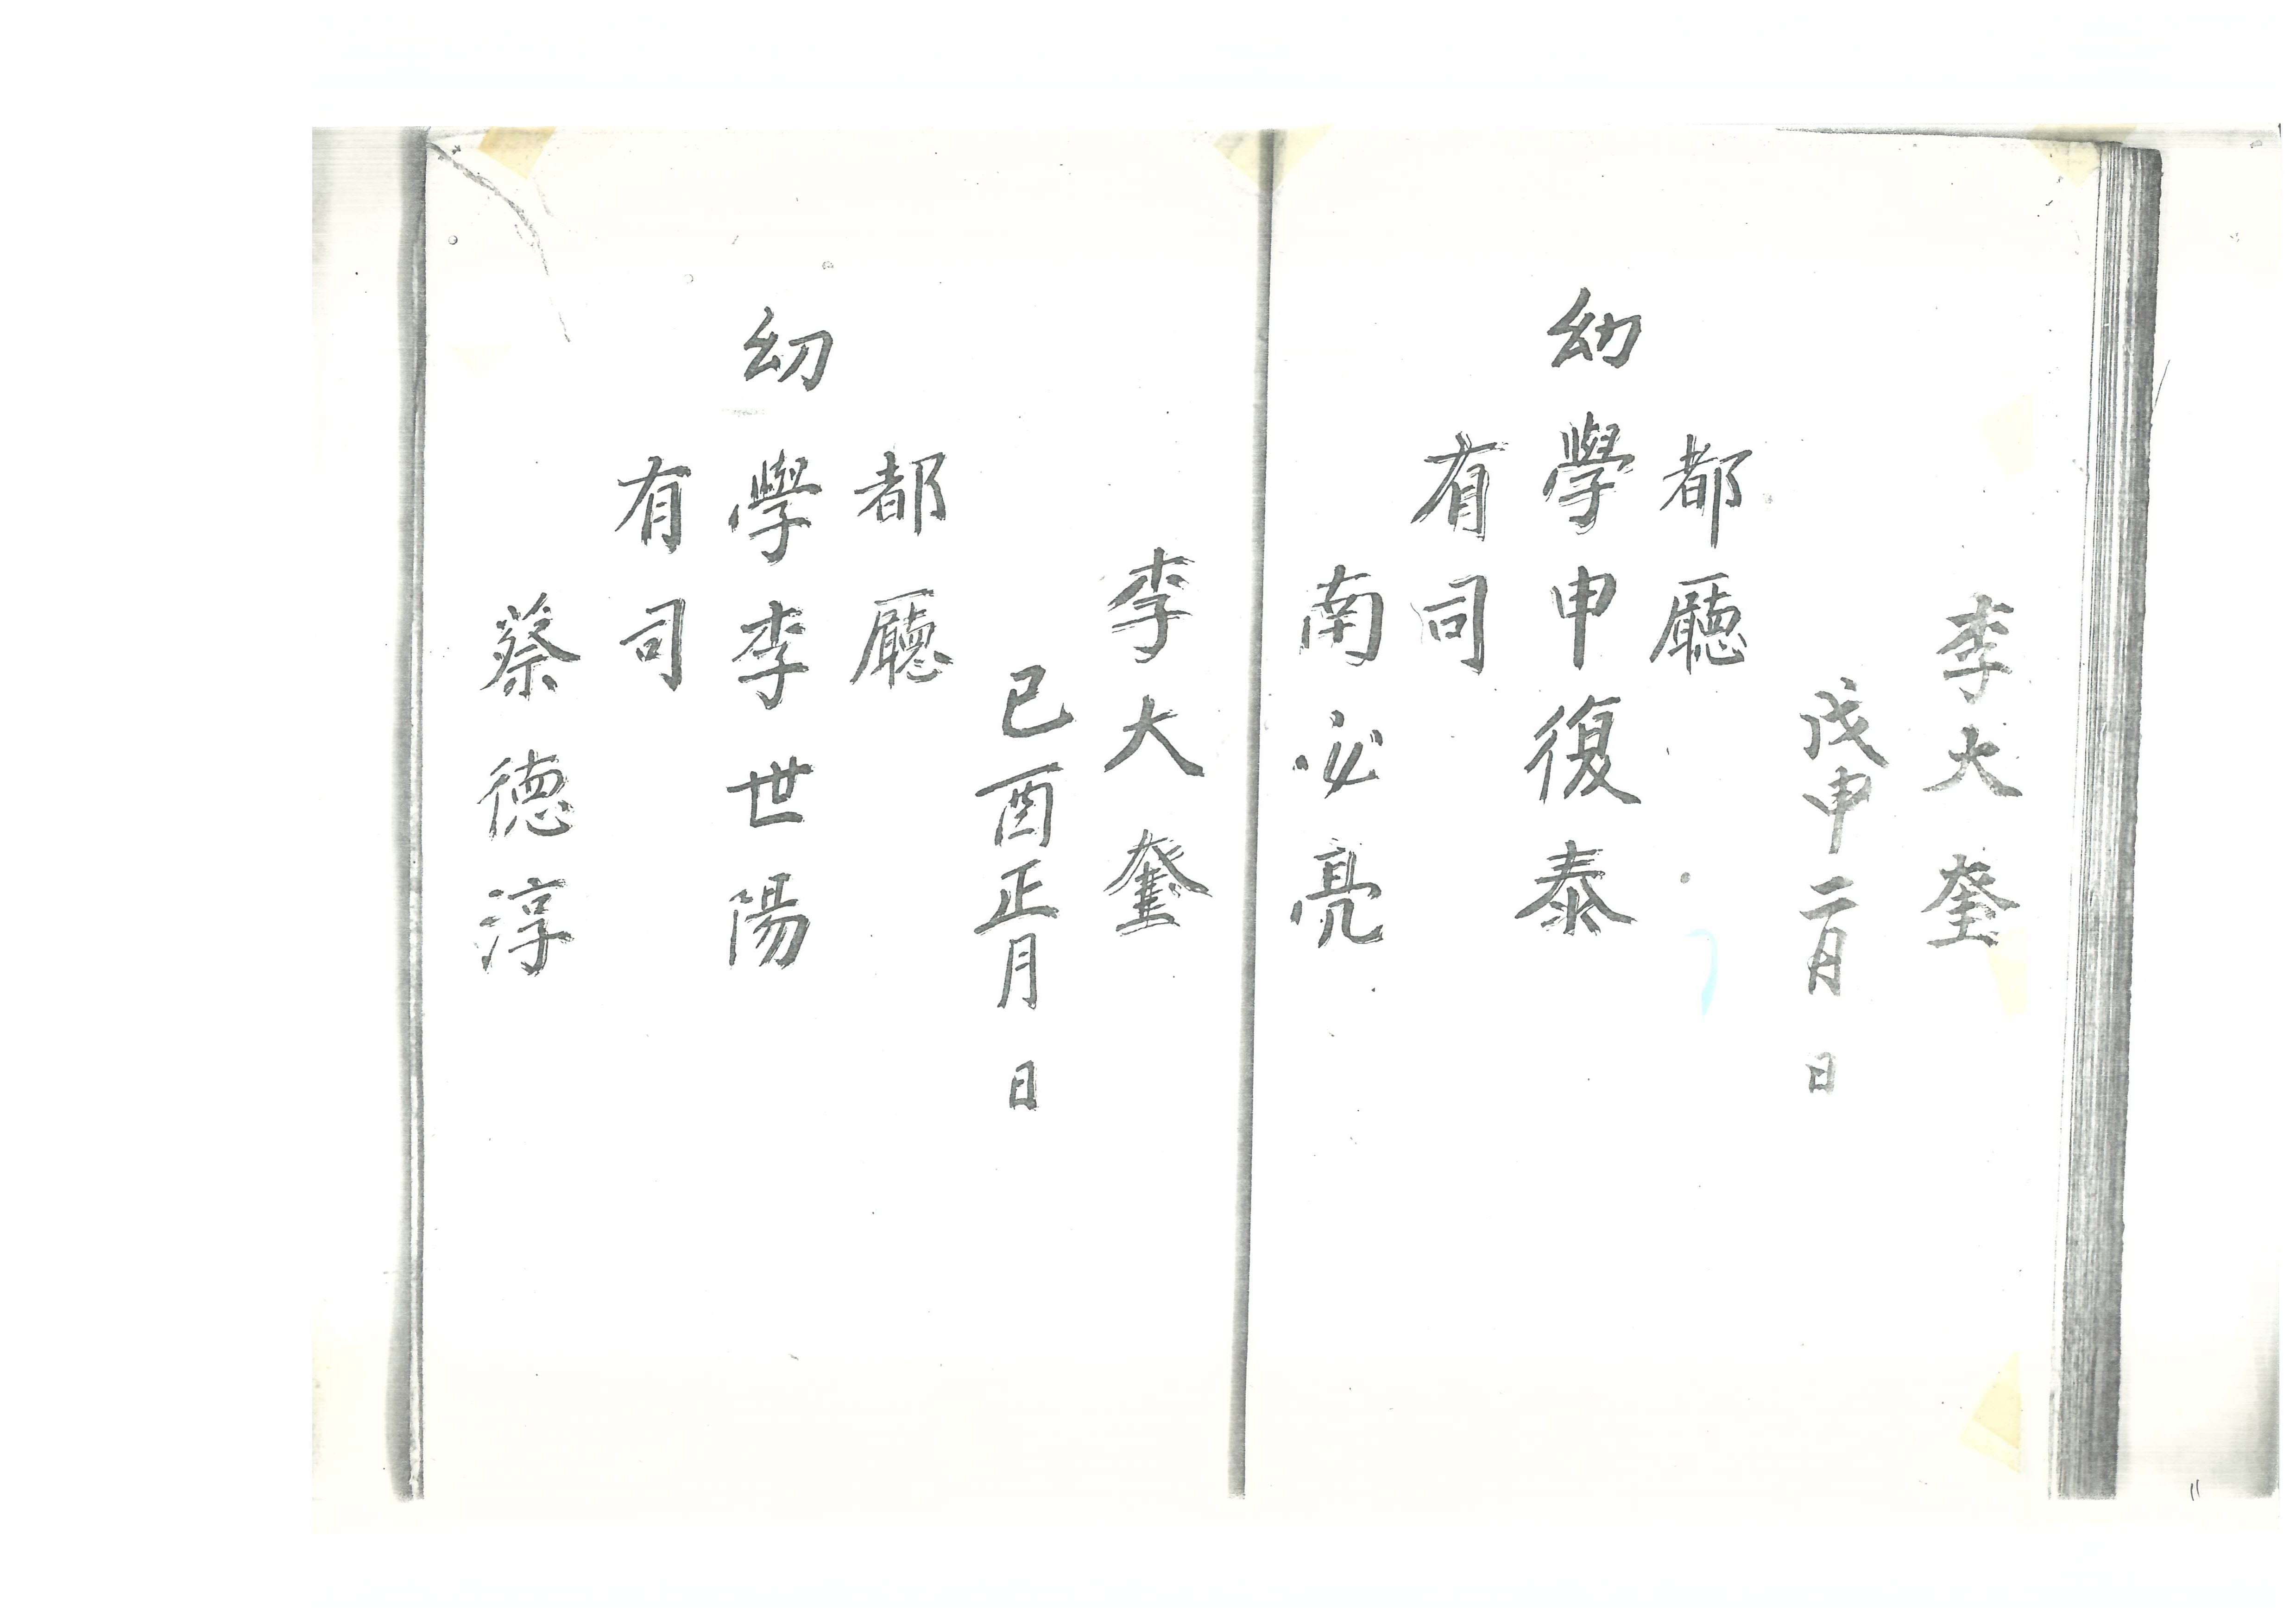 李大奎
戊申二月 日
都廳
幼學申復泰
有司
南必亮
李大奎
己酉正月 日
都廳
幼學李世陽
有司
蔡德淳